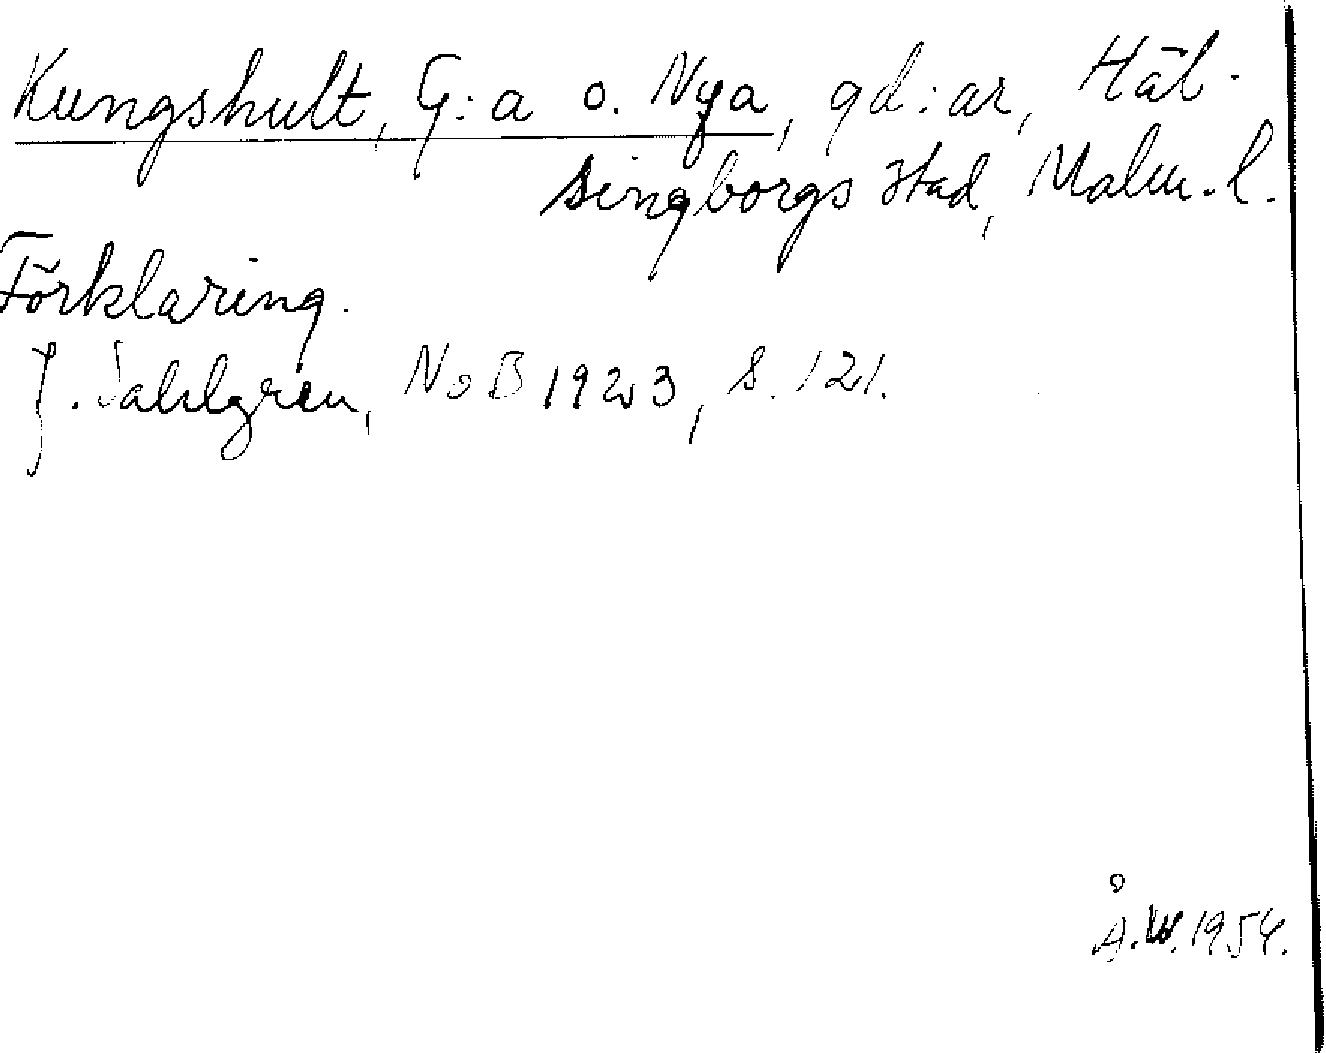 Kungshult, G:a o. Nya, gd:ar, Häl-
singborgs stad, Malm. l.
Förklaring.
J. Sahlgren, NoB 1923, s. 121.
Å.W. 1954.